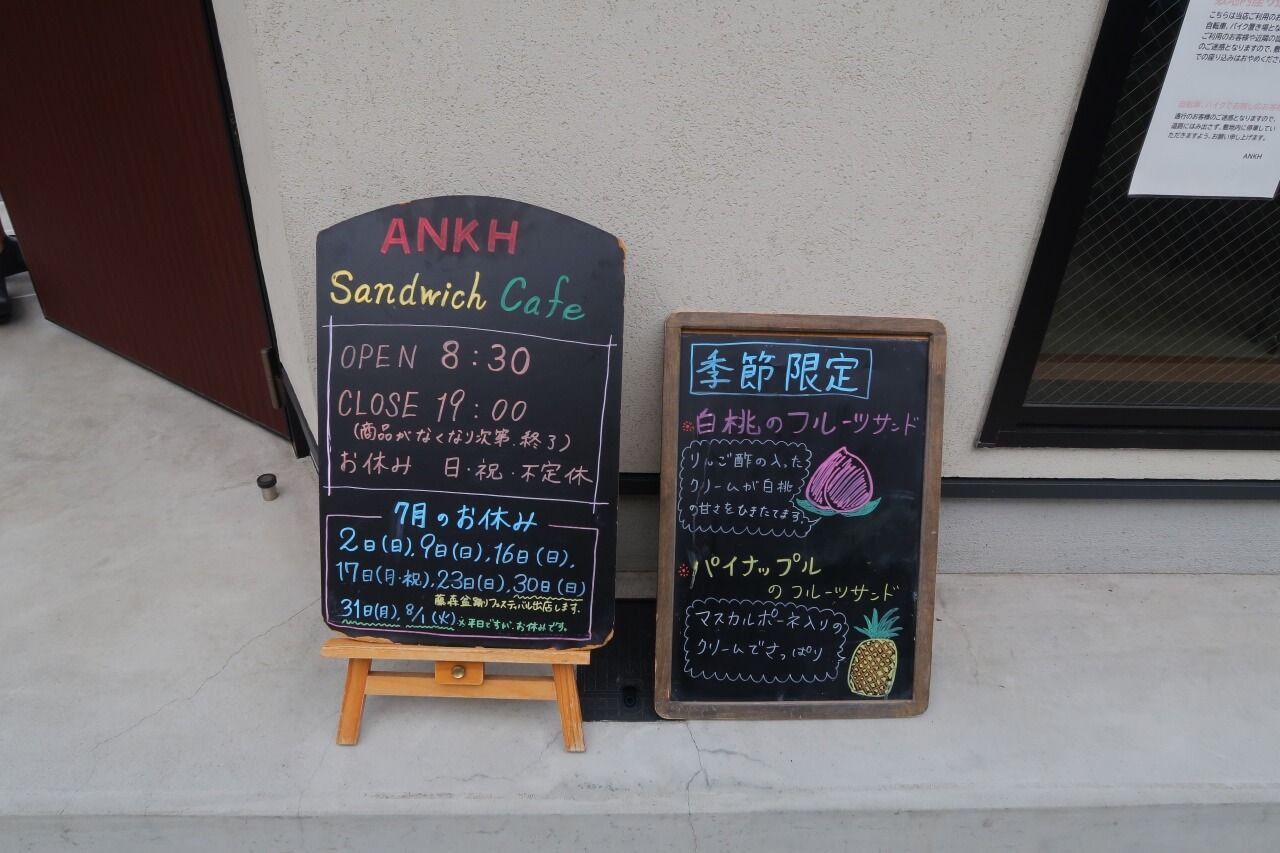 ANKH
Sandwich Cafe
OPEN 8:30
CLOSE 19:00
(商品がなくなり次第.終了)
お休み 日・祝・不定休
7月のお休み
2日(日),9日(日),16日(日),
17日(月・祝),23日(日),30日(日)
藤森盆踊りフェスティバル出店します.
31日(月), 8/1(火).※平日ですが、お休みです。
季節限定
※白桃のフルーツサンド
りんご酢の入った
クリームが白桃
の甘さをひきたてます。
※パイナップル
のフルーツサンド
マスカルポーネ入りの
クリームでさっぱり
こちらは当店ご利用のお
自転車、バイク置き場とな
ご利用のお客様や近隣の
のご迷惑となりますので、敷
での座り込みはおやめくださ
自転車、バイクでお越しのお客様
通行のお客様のご迷惑となりますので、
道路にはみ出さず、敷地内に停車してい
ただきますよう、お願い申し上げます。
ANKH